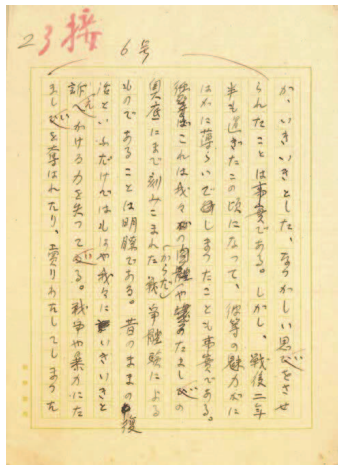 23 接
6号
が、いきいきとした、なつかしい思ひをさせ
られたことは事実である。しかし、戦後二年
半も過ぎたこの頃になって、彼等の魅力がに
はかに薄らいでしまつたことも事実である。
これは我々の肉體やたましひの
奥底にまで刻みこまれた戦争體験による
からだ
ものであることは明瞭である。昔のままの復
活といふだけではもはや我々にいきいきと
訴へかける力を失つてゐる。戦争や暴力にた
ましひを奪はれたり、賣りわたしてしまうた